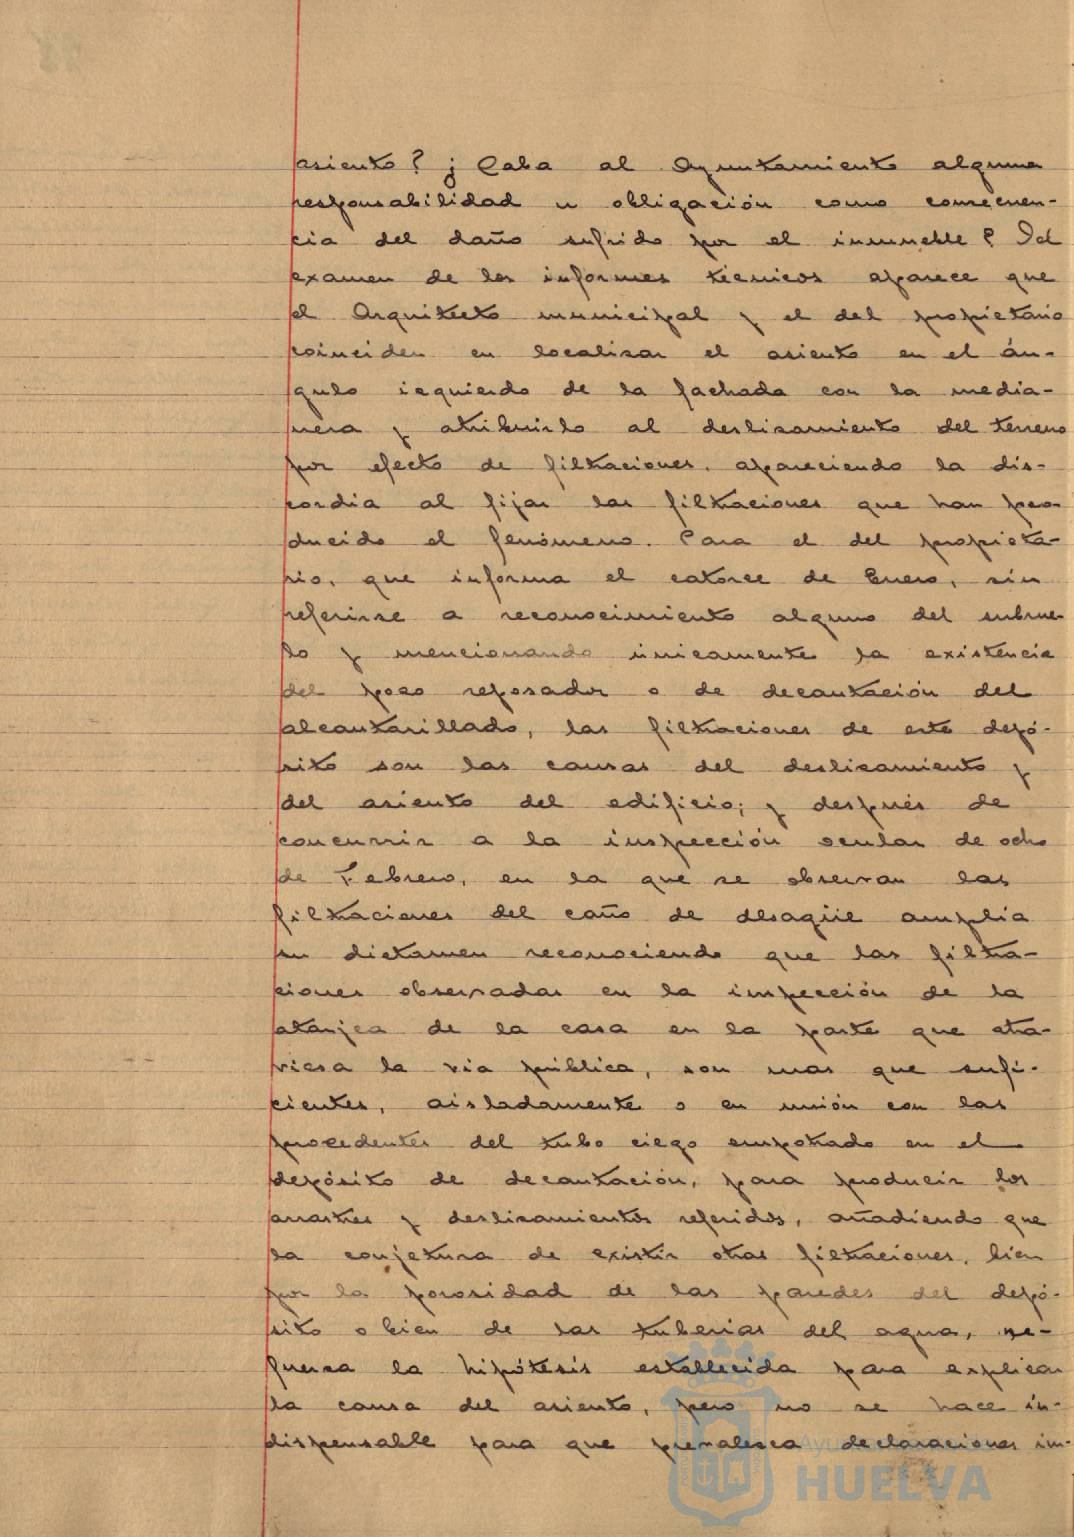 asiento? ¿Caba al Ayuntamiento alguna
responsabilidad u obligación como consecuen-
cia del daño sufrido por el inmueble? Del
examen de los informes técnicos aparece que
el Arquitecto municipal y el del propietario
coinciden en localizar el asiento en el án-
gulo izquierdo de la fachada con la media-
nera y atribuirlo al deslizamiento del terreno
por efecto de filtraciones, apareciendo la dis-
cordia al fijar las filtraciones que han pro-
ducido el fenómeno. Para el del propieta-
rio, que informa el catorce de Enero, sin
referirse a reconocimiento alguno del subsue-
lo y mencionando únicamente la existencia
del pozo reposador o de decantación del
alcantarillado, las filtraciones de este depó-
sito son las causas del deslizamiento y
del asiento del edificio; y después de
concurrir a la inspección ocular de ocho
de Febrero, en la que se observan las
filtraciones del caño de desagüe amplía
su dictamen reconociendo que las filtra-
ciones observadas en la inspección de la
atarjea de la casa en la parte que atra-
viesa la via pública, son mas que sufi-
cientes, aisladamente o en unión con las
procedentes del tubo ciego empotrado en el
depósito de decantación, para producir los
arrastres y deslizamientos referidos, añadiendo que
la conjetura de existir otras filtraciones, bien
por la porosidad de las paredes del depó-
sito o bien de las tuberias del agua, re-
fuerza la hipótesis establecida para explicar
la causa del asiento, pero no se hace in-
dispensable para que prevalezca declaraciones im-
Ayuntamiento
HUELVA